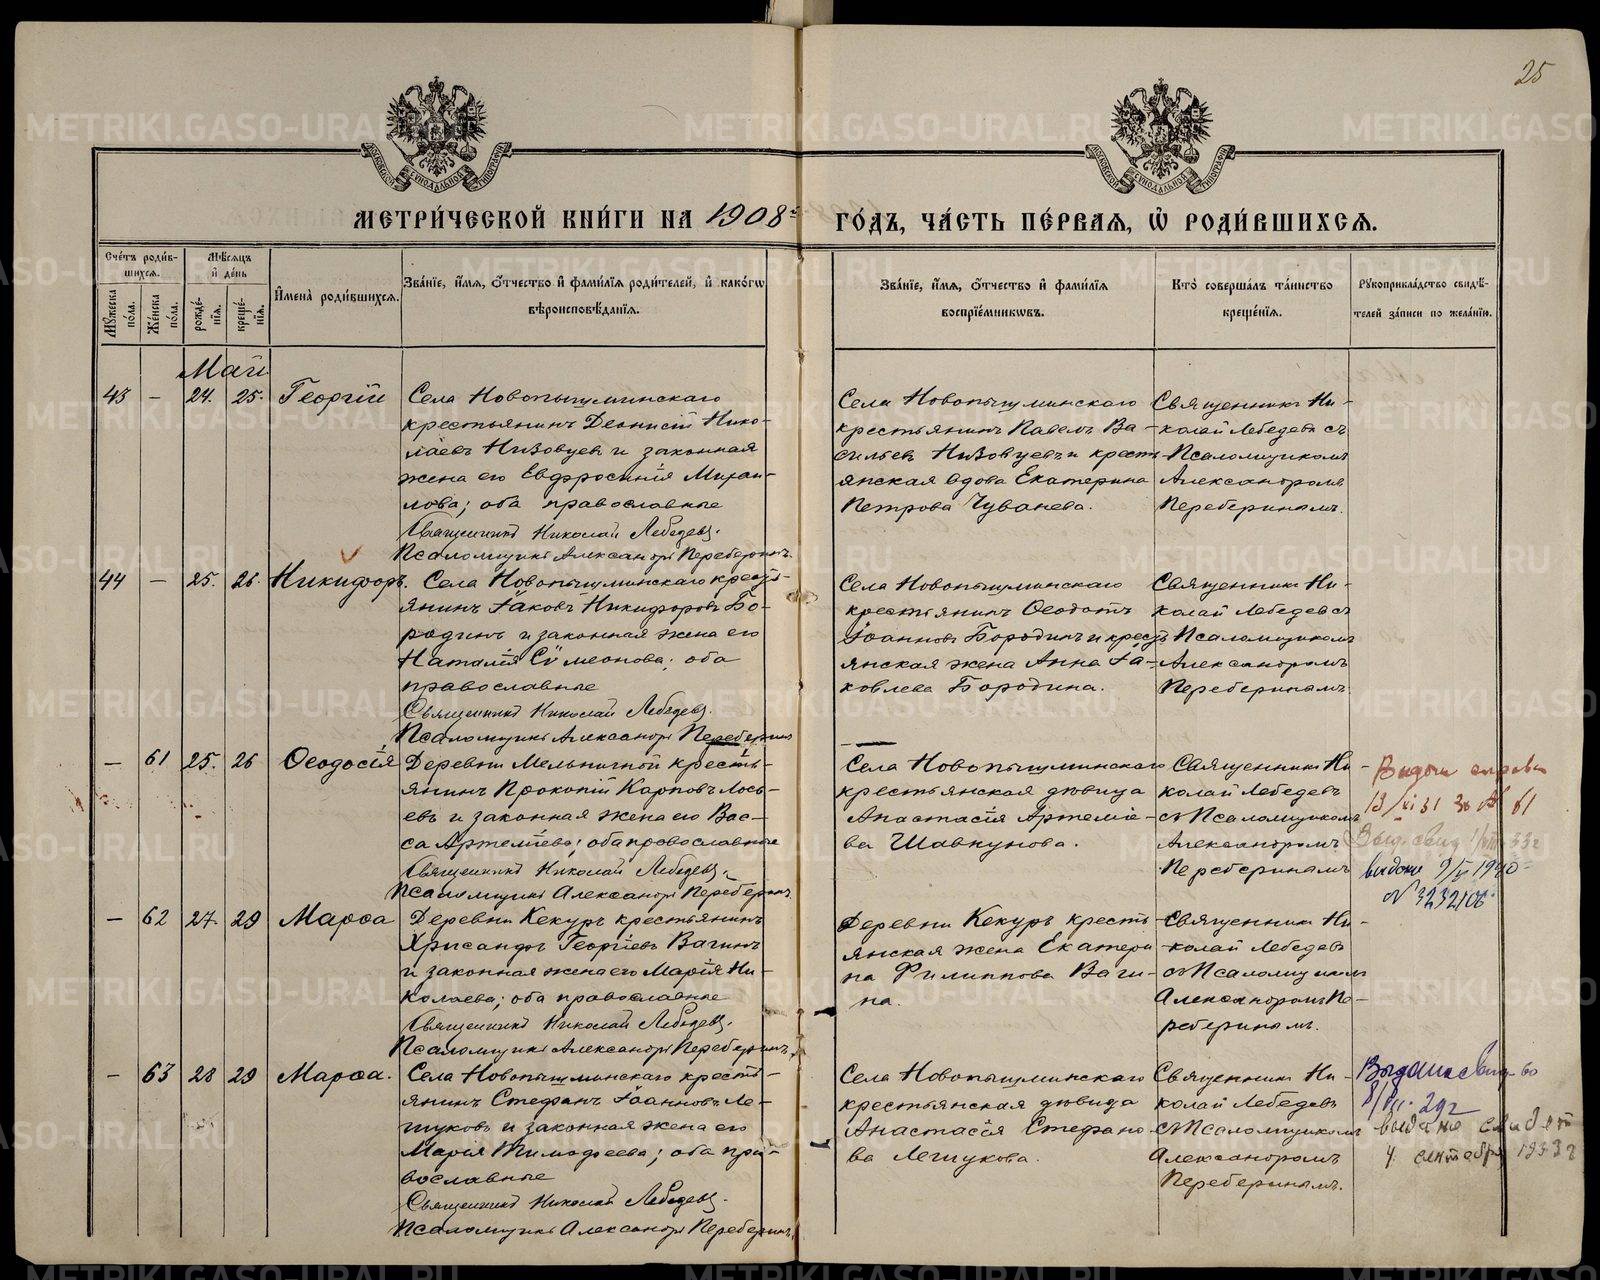 25
МЕТРИ́ЧЕСКОЙ КНИ́ГИ НА 1908 й
ГО́ДЪ, ЧА́СТЬ ПЕ́РВАЯ, Ѡ РОДИ́ВШИХСЯ.
Сче́тъ роди́в-
шихся.
Мужеска по́ла.
Же́нска по́ла.
Мѣ́сяцъ и де́нь
рожде́-
нїя.
креще́-
нїя.
И́мена роди́вшихся.
Зва́нїе, и́мя, о́тчество и фами́лїя роди́телей, и како́гѡ
вѣроисповѣ́данїя.
Зва́нїе, и́мя, о́тчество и фами́лїя
воспрїе́мникѡвъ.
Кто̀ соверша́лъ та́инство
креще́нїя.
Рукоприкла́дство свидѣ́-
телей за́писи по жела́нїю.
Май
43 — 24. 25. Георгій
Села Новопышминскаго
крестьянинъ Діонисій Нико-
лаевъ Низовцев и законная
жена его Евфросинія Михаи-
лова; оба православные
Священникъ Николай Лебедевъ.
Псаломщикъ Александръ Переберинъ.
Села Новопышминскаго
крестьянинъ Павелъ Ва-
сильевъ Низовцевъ и кресть-
янская вдова Екатерина
Петрова Чуванева.
Священникъ Ни-
колай Лебедевъ съ
Псаломщикомъ
Александромъ
Переберинымъ.
44 — 25. 26. Никифоръ.
Села Новопышминскаго кресть-
янинъ Іаковъ Никифоровъ Бо-
родинъ и законная жена его
Наталія Сѵмеонова; оба
православные
Священникъ Николай Лебедевъ.
Псаломщикъ Александръ Переберинъ
Села Новопышминскаго
крестьянинъ Ѳеодотъ
Іоанновъ Бородинъ и кресть-
янская жена Анна Іа-
ковлева Бородина.
Священникъ Ни-
колай Лебедевъ съ
Псаломщикомъ
Александромъ
Переберинымъ.
— 61 25. 26 Ѳеодосія
Деревни Мельничной кресть-
янинъ Прокопій Карповъ Лось-
евъ и законная жена его Вас-
са Артеміева; оба православные
Священникъ Николай Лебедевъ.
Псаломщикъ Александръ Переберинъ.
Села Новопышминскаго
крестьянская дѣвица
Анастасія Артеміе-
ва Шавкунова.
Священникъ Ни-
колай Лебедевъ
съ Псаломщикомъ
Александромъ
Переберинымъ
Выдана справка
13/XI 31 за № 61
Выд. свид. 1/VIII 33 г
выдано 9/V 1940
№ 3232106
— 62 27. 29 Марѳа
Деревни Кекуръ крестьянинъ
Хрисанфъ Георгіевъ Вагинъ
и законная жена его Марія Ни-
колаева; оба православные
Священникъ Николай Лебедевъ.
Псаломщикъ Александръ Переберинъ.
Деревни Кекуръ кресть-
янская жена Екатери-
на Филиппова Ваги-
на.
Священникъ Ни-
колай Лебедевъ
съ Псаломщикомъ
Александромъ Пе-
реберинымъ.
— 63 28 29 Марѳа.
Села Новопышминскаго кресть-
янинъ Стефанъ Іоанновъ Ле-
гшуковъ и законная жена его
Марія Тимофеева; оба пра-
вославные
Священникъ Николай Лебедевъ.
Псаломщикъ Александръ Переберинъ.
Села Новопышминскаго
крестьянская дѣвица
Анастасія Стефано-
ва Легшукова.
Священникъ Ни-
колай Лебедевъ
съ Псаломщикомъ
Александромъ
Переберинымъ.
Выдана Свид-во
29 г
выдана свидет
4 сентября 1933 г